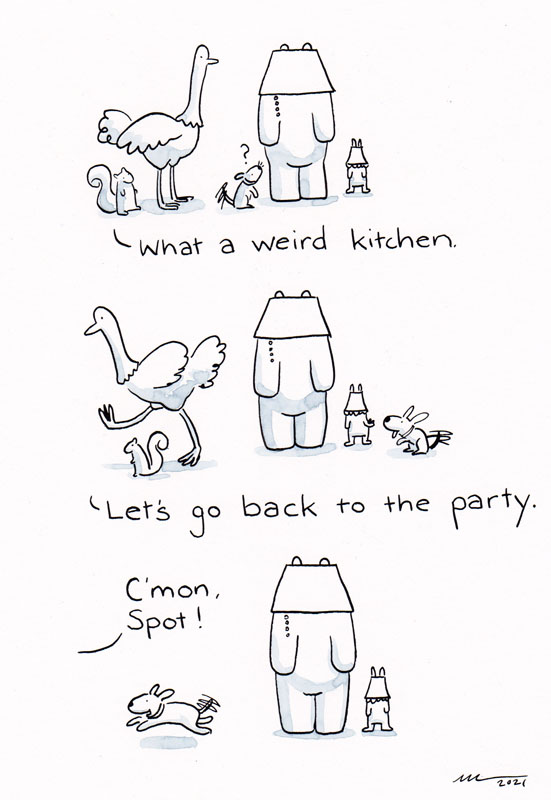 ?
What a weird kitchen.
Let's go back to the party.
C'mon,
Spot!
2021